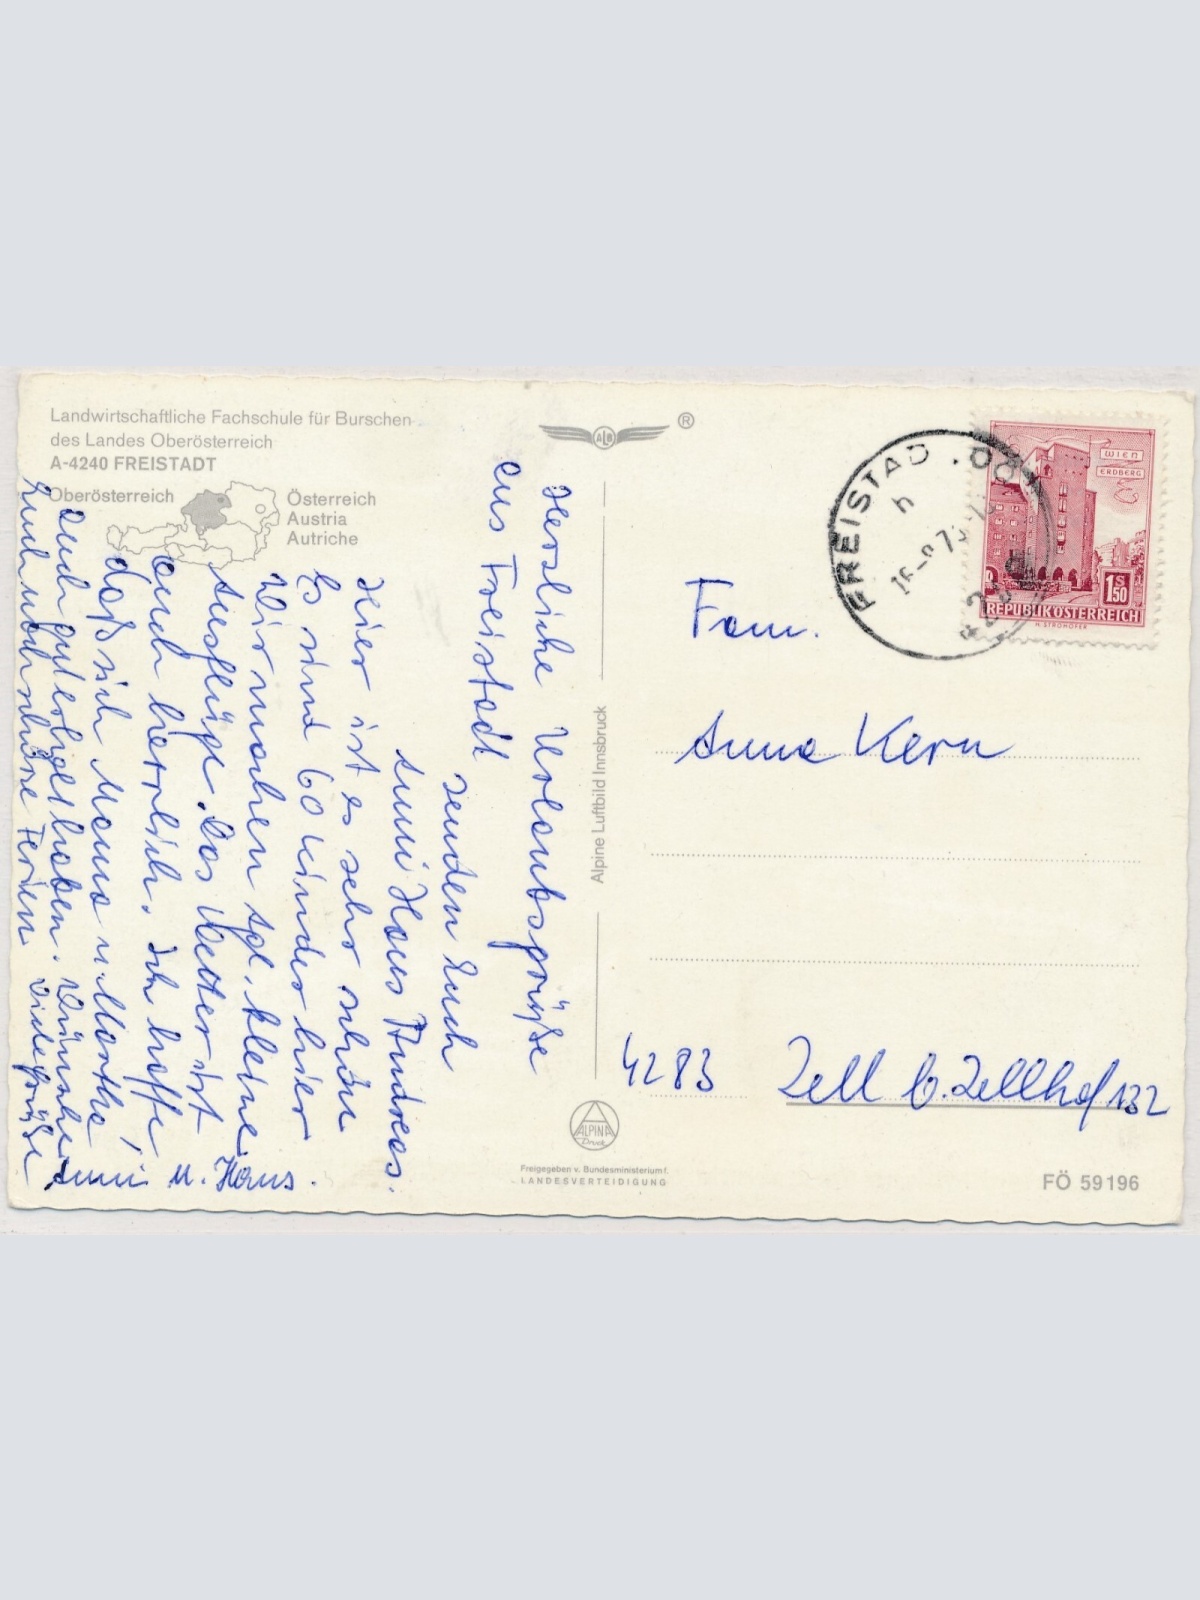 Landwirtschaftliche Fachschule für Burschen
des Landes Oberösterreich
A-4240 FREISTADT
Oberösterreich
Österreich
Austria
Autriche
ALB
®
Herzliche Urlaubsgrüße
aus Freistadt
senden Euch
Anni Hans Andreas.
Hier ist es sehr schön
Es sind 60 Kinder hier
Wir machen tgl. kleine
Ausflüge. Das Wetter ist
auch herrlich. Ich hoffe
daß sich Mama u. Martha
auch gut erholt haben. Wünsche
Euch noch schöne Ferien Viele Grüße
Anni u. Hans.
Alpine Luftbild Innsbruck
ALPINA
Druck
Freigegeben v. Bundesministerium f.
LANDESVERTEIDIGUNG
FREISTADT, OÖ
WIEN
ERDBERG
1S50
REPUBLIK ÖSTERREICH
H. STROHOFER
Fam.
Anna Kern
4283 Zell b. Zellhof 132
FÖ 59196